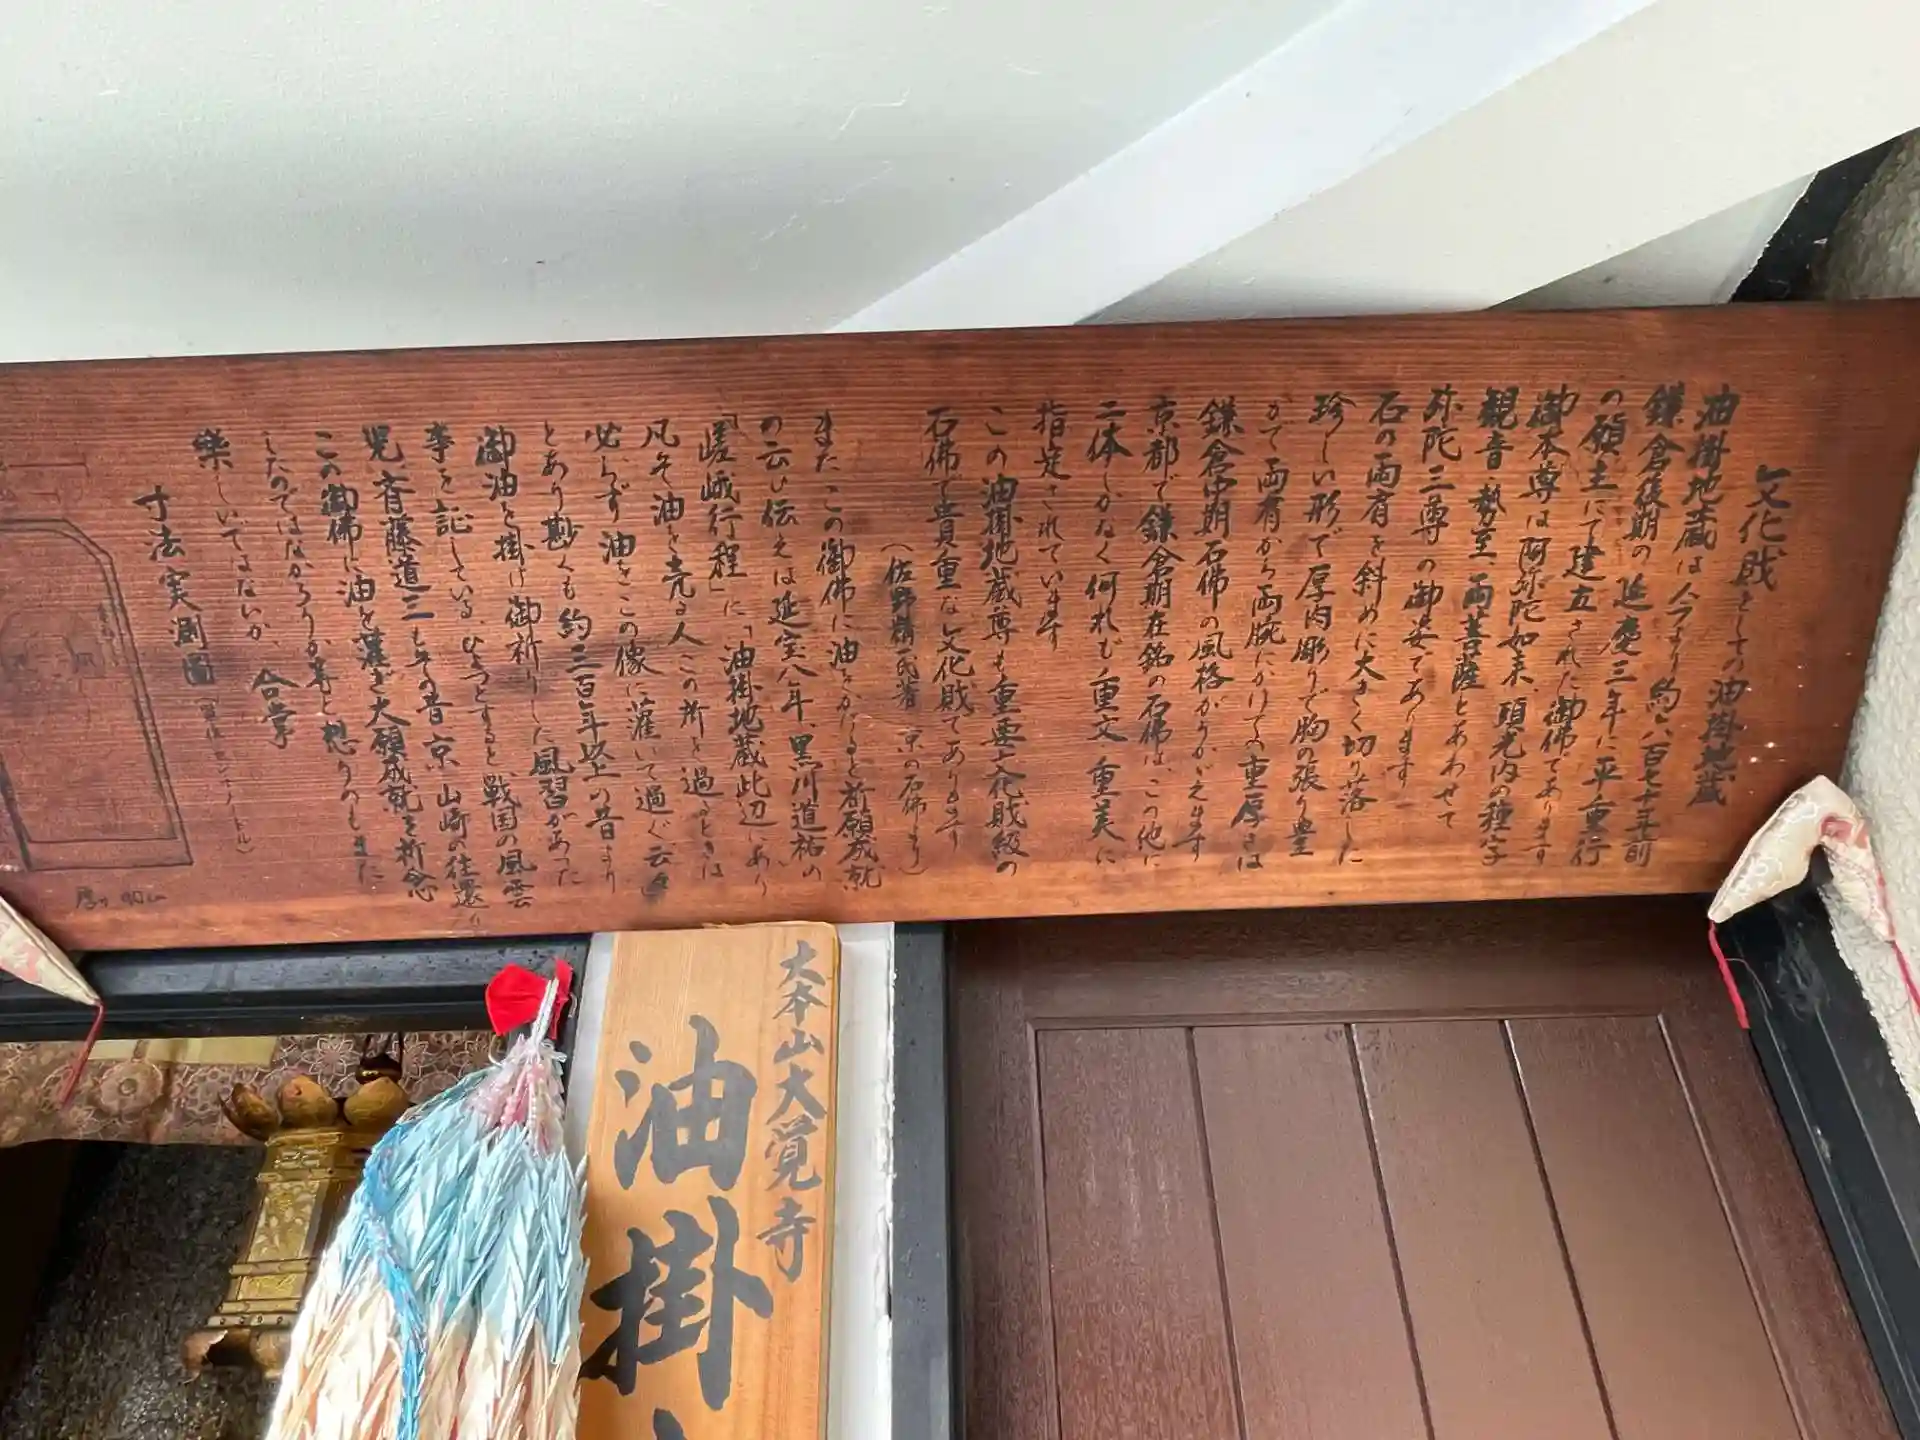 文化財としての油掛地蔵
油掛地蔵は今より約六百七十年前
鎌倉後期の延慶三年に平重行
の願主にて建立された御佛であります
御本尊は阿弥陀如来、頭光内の種字
観音・勢至、両菩薩とあわせて
弥陀三尊の御姿であります
石の両肩を斜めに大きく切り落した
珍しい形で厚肉彫りで胸の張り豊
かで両肩から両腕にかけての重厚さは
鎌倉中期石佛の風格がうかがえます
京都で鎌倉期在銘の石佛は、この他に
二体しかなく何れも重文・重美に
指定されています
この油掛地蔵尊も重要文化財級の
石佛で貴重な文化財であります
(佐野精一氏著 京の石佛より)
またこの御佛に油をかけると祈願成就
の云い伝えは延宝八年、黒川道祐の
「嵯峨行程」に「油掛地蔵此辺にあり
凡そ油を売る人この所を過るときは
必らず油をこの像に灌いて過ぐ云々」
とあり勘くも約三百年以上の昔より
御油を掛け御祈りした風習があった
事を証している、ひょっとすると戦国の風雲
児、斉藤道三もその昔京、山崎の往還に
この御佛に油を灌ぎ大願成就を祈念
したのではなかろうか等と想うのもまた
楽しいではないか、 合掌
寸法実測図
厚サ 90cm
大本山大覚寺
油掛